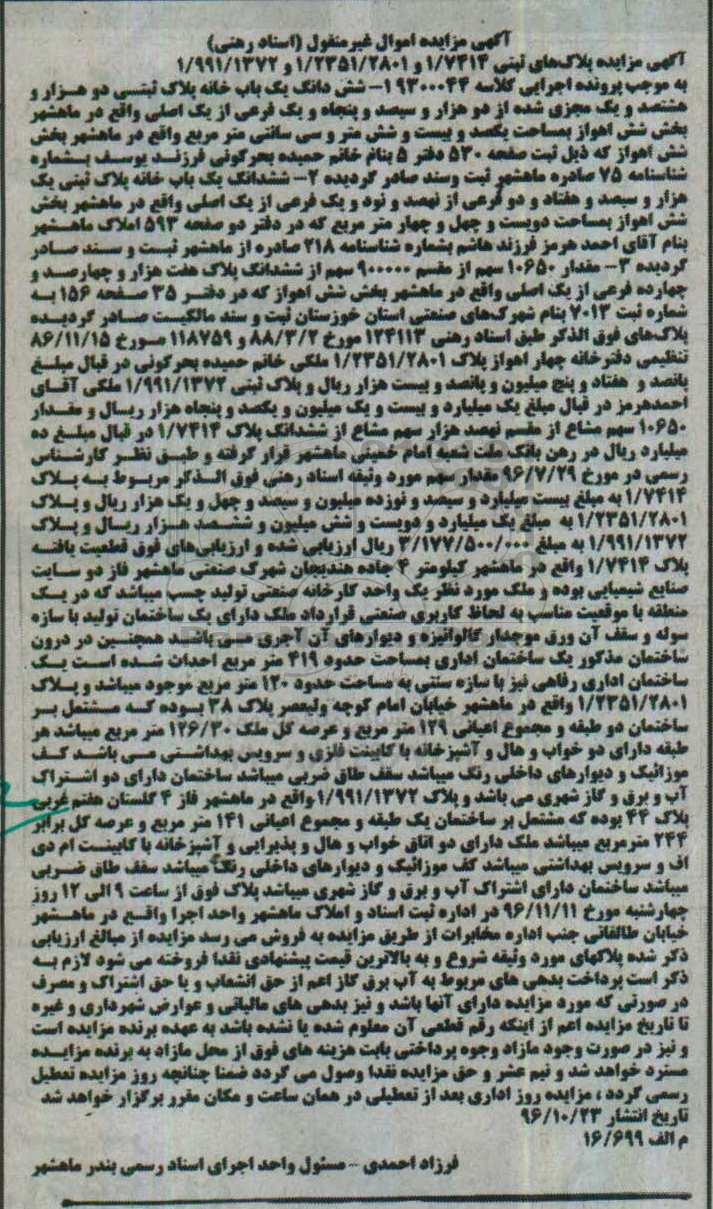 آگهی مزایده اموال غیرمنقول (اسناد رهنی)
آگهی مزایده پلاک‌های ثبتی ۱/۷۴۱۴ و ۱/۲۳۵۱/۲۸۰۱ و ۱/۹۹۱/۱۳۷۲
به موجب پرونده اجرایی کلاسه ۹۳۰۰۰۴۴ ۱- شش دانگ یک باب خانه پلاک ثبتی دو هزار و
هشتصد و یک مجزی شده از دو هزار و سیصد و پنجاه و یک فرعی از یک اصلی واقع در ماهشهر
بخش شش اهواز بمساحت یکصد و بیست و شش متر و سی سانتی متر مربع واقع در ماهشهر بخش
شش اهواز که ذیل ثبت صفحه ۵۳۰ دفتر ۵ بنام خانم حمیده بحرکونی فرزند یوسف بشماره
شناسنامه ۷۵ صادره ماهشهر ثبت وسند صادر گردیده ۲- ششدانگ یک باب خانه پلاک ثبتی یک
هزار و سیصد و هفتاد و دو فرعی از نهصد و نود و یک فرعی از یک اصلی واقع در ماهشهر بخش
شش اهواز بمساحت دویست و چهل و چهار متر مربع که در دفتر دو صفحه ۵۹۳ املاک ماهشهر
بنام آقای احمد هرمز فرزند هاشم بشماره شناسنامه ۲۱۸ صادره از ماهشهر ثبت و سند صادر
گردیده ۳- مقدار ۱۰۶۵۰ سهم از مقسم ۹۰۰۰۰۰ سهم از ششدانگ پلاک هفت هزار و چهارصد و
چهارده فرعی از یک اصلی واقع در ماهشهر بخش شش اهواز که در دفتر ۳۵ صفحه ۱۵۶ به
شماره ثبت ۷۰۱۳ بنام شهرک‌های صنعتی استان خوزستان ثبت و سند مالکیت صادر گردیده
پلاک‌های فوق الذکر طبق اسناد رهنی ۱۲۴۱۱۳ مورخ ۸۸/۳/۲ و ۱۱۸۷۵۹ مورخ ۸۶/۱۱/۱۵
تنظیمی دفترخانه چهار اهواز پلاک ۱/۲۳۵۱/۲۸۰۱ ملکی خانم حمیده بحرکونی در قبال مبلغ
پانصد و هفتاد و پنج میلیون و پانصد و بیست هزار ریال و پلاک ثبتی ۱/۹۹۱/۱۳۷۲ ملکی آقای
احمدهرمز در قبال مبلغ یک میلیارد و بیست و یک میلیون و یکصد و پنجاه هزار ریال و مقدار
۱۰۶۵۰ سهم مشاع از مقسم نهصد هزار سهم مشاع از ششدانگ پلاک ۱/۷۴۱۴ در قبال مبلغ ده
میلیارد ریال در رهن بانک ملت شعبه امام خمینی ماهشهر قرار گرفته و طبق نظر کارشناس
رسمی در مورخ ۹۶/۷/۲۹ مقدار سهم مورد وثیقه اسناد رهنی فوق الذکر مربوط به پلاک
۱/۷۴۱۴ به مبلغ بیست میلیارد و سیصد و نوزده میلیون و سیصد و چهل و یک هزار ریال و پلاک
۱/۲۳۵۱/۲۸۰۱ به مبلغ یک میلیارد و دویست و شش میلیون و ششصد هزار ریال و پلاک
۱/۹۹۱/۱۳۷۲ به مبلغ ۳/۱۷۷/۵۰۰/۰۰۰ ریال ارزیابی شده و ارزیابی‌های فوق قطعیت یافته
پلاک ۱/۷۴۱۴ واقع در ماهشهر کیلومتر ۴ جاده هندیجان شهرک صنعتی ماهشهر فاز دو سایت
صنایع شیمیایی بوده و ملک مورد نظر یک واحد کارخانه صنعتی تولید چسب میباشد که در یک
منطقه با موقعیت مناسب به لحاظ کاربری صنعتی قرارداد ملک دارای یک ساختمان تولید با سازه
سوله و سقف آن ورق موجدار گالوانیزه و دیوارهای آن آجری می باشد همچنین در درون
ساختمان مذکور یک ساختمان اداری بمساحت حدود ۴۱۹ متر مربع احداث شده است یک
ساختمان اداری رفاهی نیز با سازه سنتی به مساحت حدود ۱۲۰ متر مربع موجود میباشد و پلاک
۱/۲۳۵۱/۲۸۰۱ واقع در ماهشهر خیابان امام کوچه ولیعصر پلاک ۳۸ بوده که مشتمل بر
ساختمان دو طبقه و مجموع اعیانی ۱۲۹ متر مربع و عرصه کل ملک ۱۲۶/۳۰ متر مربع میباشد هر
طبقه دارای دو خواب و هال و آشپزخانه با کابینت فلزی و سرویس بهداشتی می باشد کف
موزائیک و دیوارهای داخلی رنگ میباشد سقف طاق ضربی میباشد ساختمان دارای دو اشتراک
آب و برق و گاز شهری می باشد و پلاک ۱/۹۹۱/۱۳۷۲ واقع در ماهشهر فاز ۴ گلستان هفتم غربی
پلاک ۴۴ بوده که مشتمل بر ساختمان یک طبقه و مجموع اعیانی ۱۴۱ متر مربع و عرصه کل برابر
۲۴۴ مترمربع میباشد ملک دارای دو اتاق خواب و هال و پذیرایی و آشپزخانه با کابینت ام دی
اف و سرویس بهداشتی میباشد کف موزائیک و دیوارهای داخلی رنگ میباشد سقف طاق ضربی
میباشد ساختمان دارای اشتراک آب و برق و گاز شهری میباشد پلاک فوق از ساعت ۹ الی ۱۲ روز
چهارشنبه مورخ ۹۶/۱۱/۱۱ در اداره ثبت اسناد و املاک ماهشهر واحد اجرا واقع در ماهشهر
خیابان طالقانی جنب اداره مخابرات از طریق مزایده به فروش می رسد مزایده از مبالغ ارزیابی
ذکر شده پلاکهای مورد وثیقه شروع و به بالاترین قیمت پیشنهادی نقدا فروخته می شود لازم به
ذکر است پرداخت بدهی های مربوط به آب برق گاز اعم از حق انشعاب و یا حق اشتراک و مصرف
در صورتی که مورد مزایده دارای آنها باشد و نیز بدهی های مالیاتی و عوارض شهرداری و غیره
تا تاریخ مزایده اعم از اینکه رقم قطعی آن معلوم شده یا نشده باشد به عهده برنده مزایده است
و نیز در صورت وجود مازاد وجوه پرداختی بابت هزینه های فوق از محل مازاد به برنده مزایده
مسترد خواهد شد و نیم عشر و حق مزایده نقدا وصول می گردد ضمنا چنانچه روز مزایده تعطیل
رسمی گردد ، مزایده روز اداری بعد از تعطیلی در همان ساعت و مکان مقرر برگزار خواهد شد
تاریخ انتشار ۹۶/۱۰/۲۳
م الف ۱۶/۶۹۹
فرزاد احمدی - مسئول واحد اجرای اسناد رسمی بندر ماهشهر